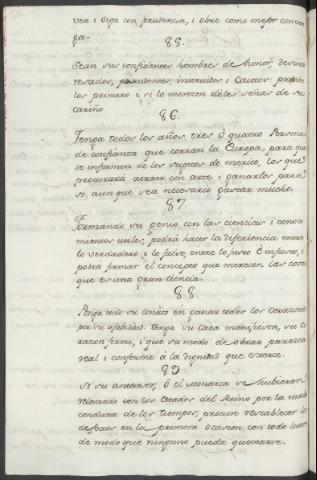 vea i Oiga con prudencia, i obre como mejor conven
ga.
85.
Sean sus confidentes hombres de honor, desinte
resados, prudentes, instruidos i Cautos: pruebe
los primero i si lo merecen déles señas de su
cariño
86.
Tenga todos los años, tres ó quatro Personas
de confianza que corran la Europa, para que
se informen de los sugetos de merito, los que
procurará atraer con arte i ganarlos para
si, aunque vea necesario gastar mucho.
87
Formando su genio con las ciencias i conoci
mientos utiles, podrá hacer la diferiencia entre
lo verdadero i lo falso, entre lo justo é injusto, i
podrá formar el concepto que merecen las cosas
que es una gran ciencia.
88.
Ponga todo su conato en ganar todos los corazones
por su afabilidad. tenga su cara manifiesta, su co
razon firme, i que su modo de obrar parezca
real i conforme à la Dignidad que exerce.
89
Si su antecesor, ó el Monarca se hubieren
relaxado con los Estados del Reino por la mala
conducta de los tiempos, procure restablecer los
defectos en la primera ocasion con todo
de modo que ninguno pueda quexarse.